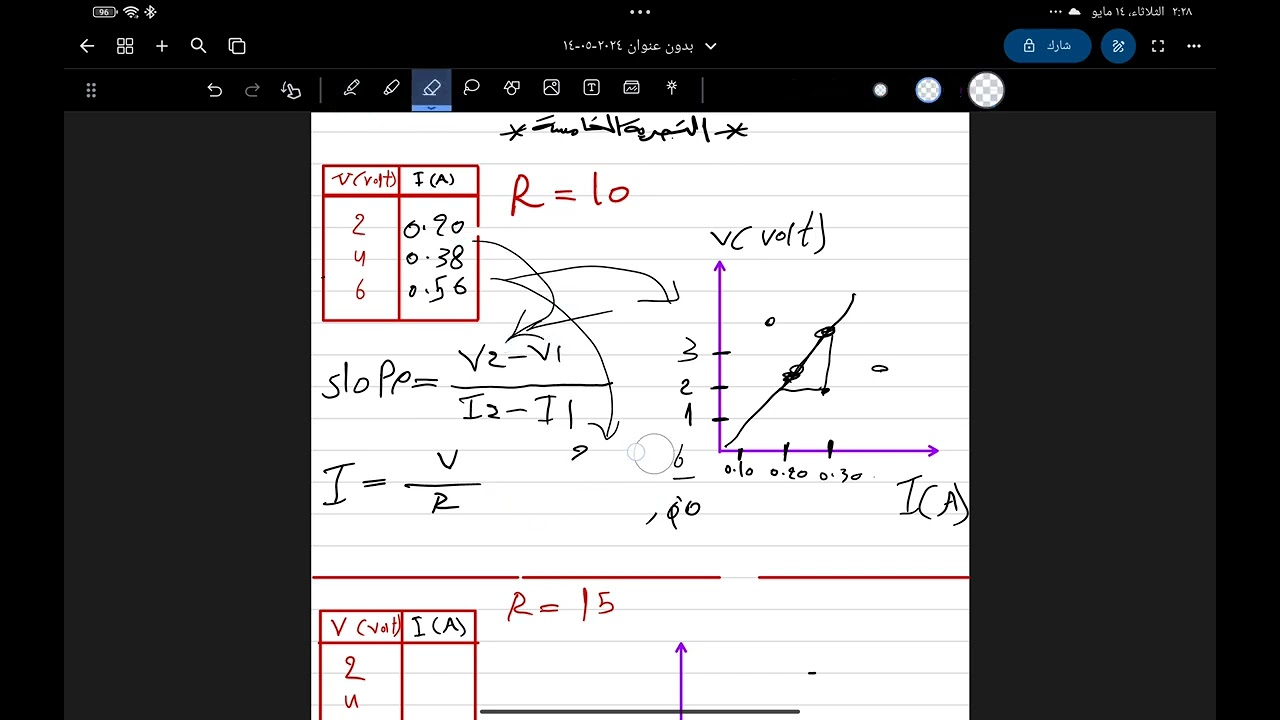 96
٢:٢٨ الثلاثاء، ١٤ مايو
بدون عنوان ٢٠٢٤-٠٥-١٤
شارك
* التجربة الخامسة *
V(volt) I(A)
2 0.20
4 0.38
6 0.56
R = 10
V(volt)
slope = V2-V1
I2-I1
3
2
1
0.10 0.20 0.30
I(A)
I = V
R
6
R = 15
V(volt) I(A)
2
4